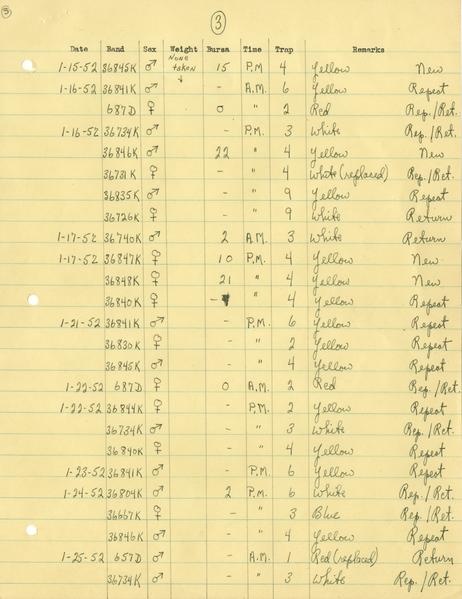 3
3
Date Band Sex Weight Bursa Time Trap Remarks
None taken
↓
1-15-52 36845K ♂ 15 P.M 4 Yellow New
1-16-52 36841K ♂ - A.M. 6 Yellow Repeat
687D ♀ 0 " 2 Red Rep./Ret.
1-16-52 36734K ♂ - P.M. 3 White Rep./Ret.
36846K ♂ 22 " 4 Yellow New
36731K ♀ - " 4 White (replaced) Rep./Ret.
36835K ♂ - " 9 Yellow Repeat
36726K ♀ - " 9 White Return
1-17-52 36740K ♂ 2 A.M. 3 White Return
1-17-52 36847K ♀ 10 P.M. 4 Yellow New
36848K ♀ 21 " 4 Yellow New
36840K ♀ - " 4 Yellow Repeat
1-21-52 36841K ♂ - P.M. 6 Yellow Repeat
36830K ♀ - " 2 Yellow Repeat
36845K ♂ - " 4 Yellow Repeat
1-22-52 687D ♀ 0 A.M. 2 Red Rep/Ret.
1-22-52 36844K ♀ - P.M. 2 Yellow Repeat
36734K ♂ - " 3 White Rep./Ret.
36840K ♀ - " 4 Yellow Repeat
1-23-52 36841K ♂ - P.M. 6 Yellow Repeat
1-24-52 36804K ♂ 2 P.M. 6 White Rep./Ret.
36667K ♀ - " 3 Blue Rep./Ret.
36846K ♂ - " 4 Yellow Repeat
1-25-52 657D ♂ - A.M. 1 Red (replaced) Return
36734K ♂ - " 3 White Rep./Ret.